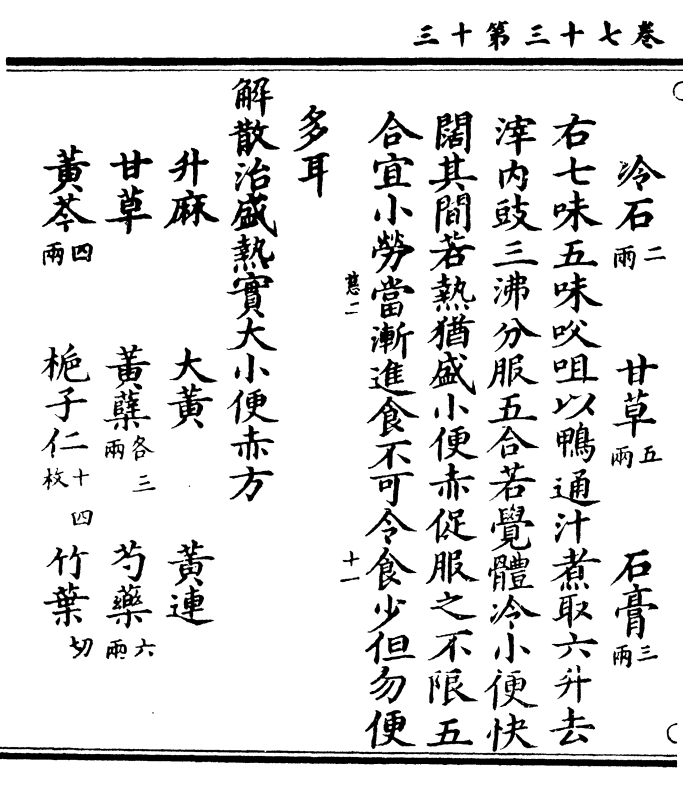 卷七十三第十三
冷石二兩 甘草五兩 石膏三兩
右七味五味㕮咀以鴨通汁煮取六升去
滓内豉三沸分服五合若覺體冷小便快
闊其間若熱猶盛小便赤促服之不限五
合宜小勞當漸進食不可令食少但勿便
十一
多耳
解散治盛熱實大小便赤方
升麻 大黃 黃連
甘草 黃蘗各三兩 芍藥六兩
黃芩四兩 梔子仁十四枚 竹葉切